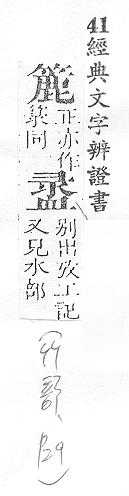 41經典文字辨證書
簏
正亦作
箓同
盝
別出攷工記
又見水部
(竹部, 129)